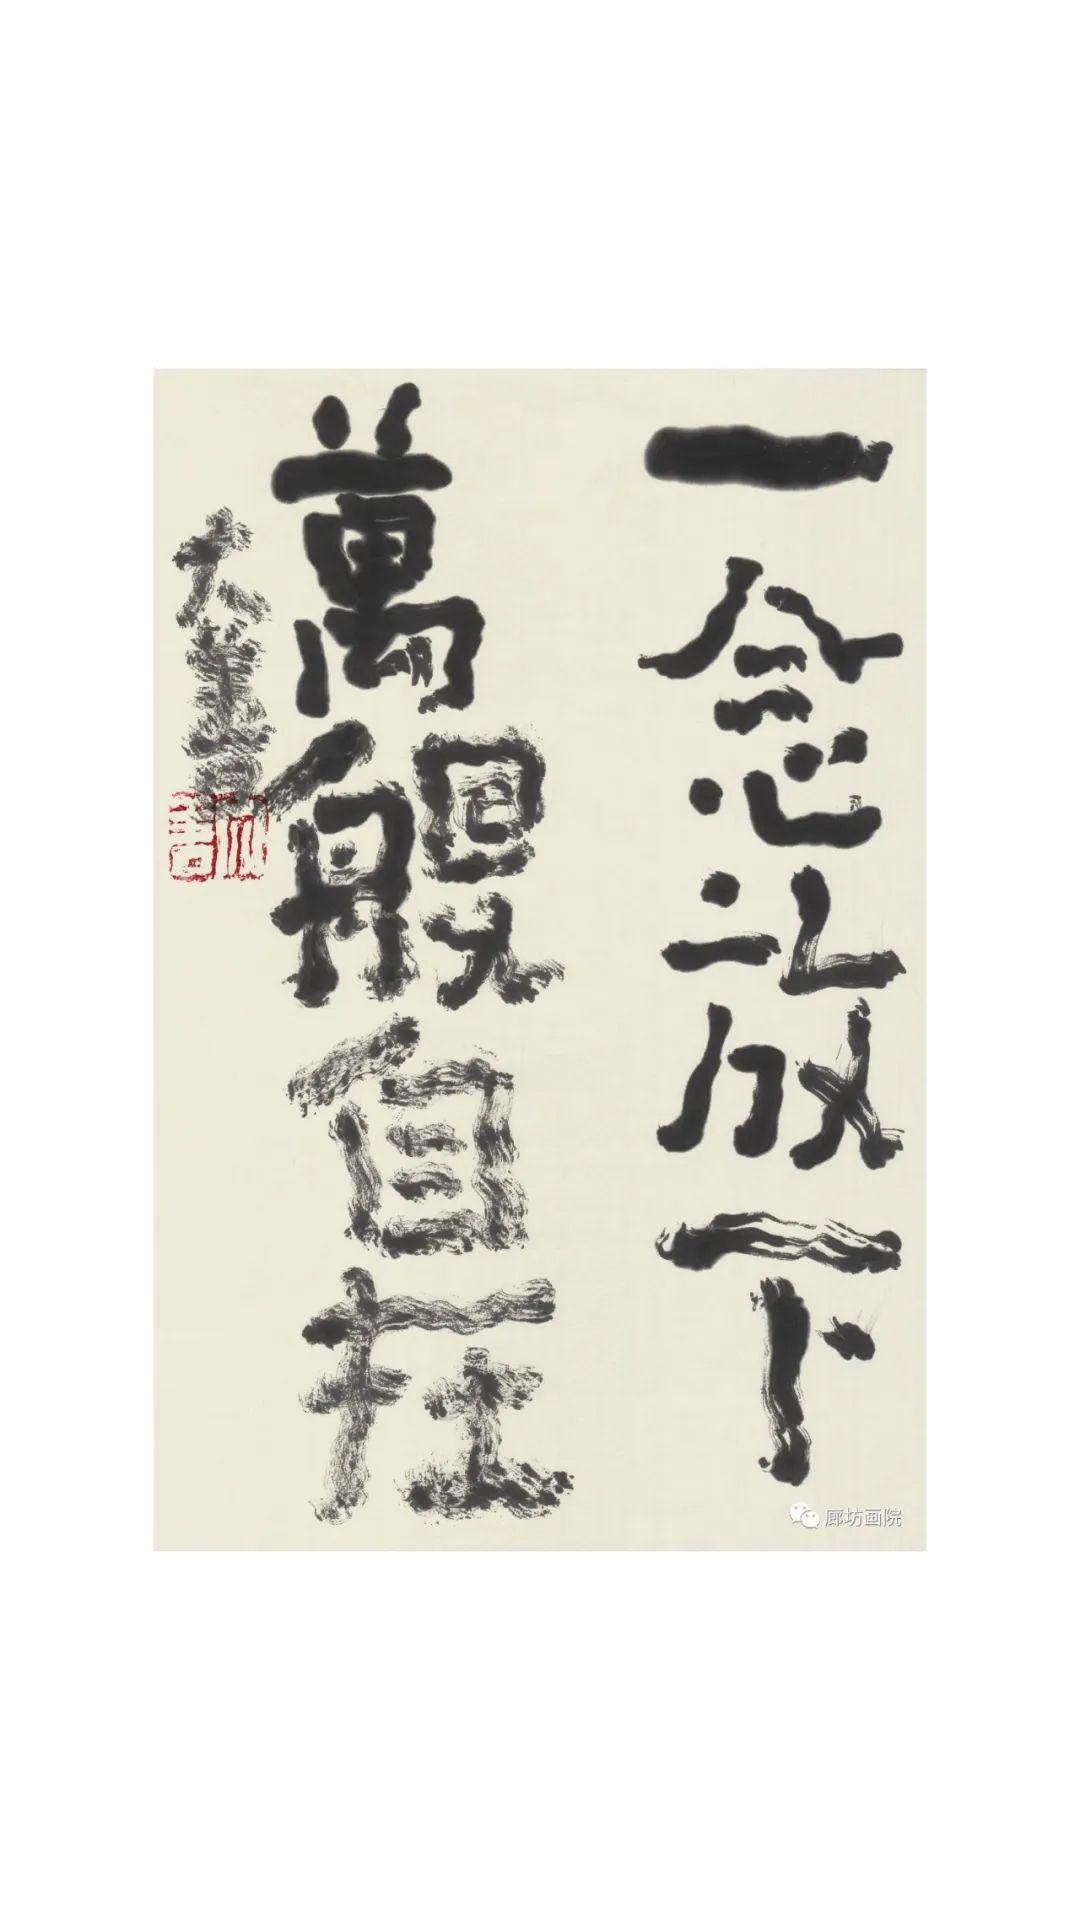 一念放下
萬般自在
大筆書
廊坊画院